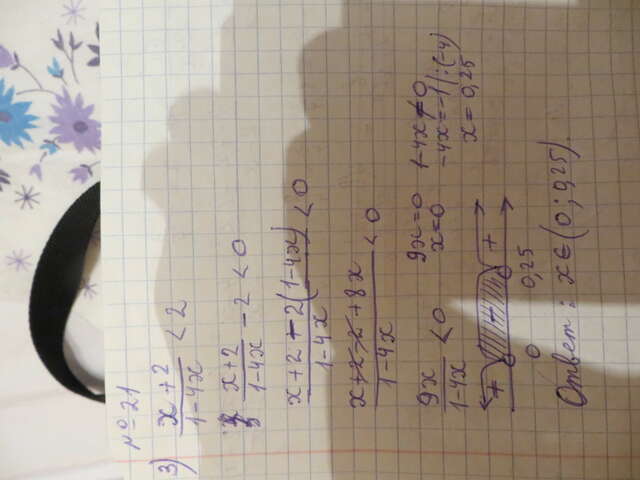 №21
3) x+2/1-4x < 2
x+2/1-4x - 2 < 0
x+2-2(1-4x)/1-4x < 0
x+2-2+8x/1-4x < 0
9x/1-4x < 0 9x=0 1-4x≠0
x=0 -4x=-1|:(-4)
x=0,25
+ - +
0 0,25
Ответ: x∈(0;0,25).